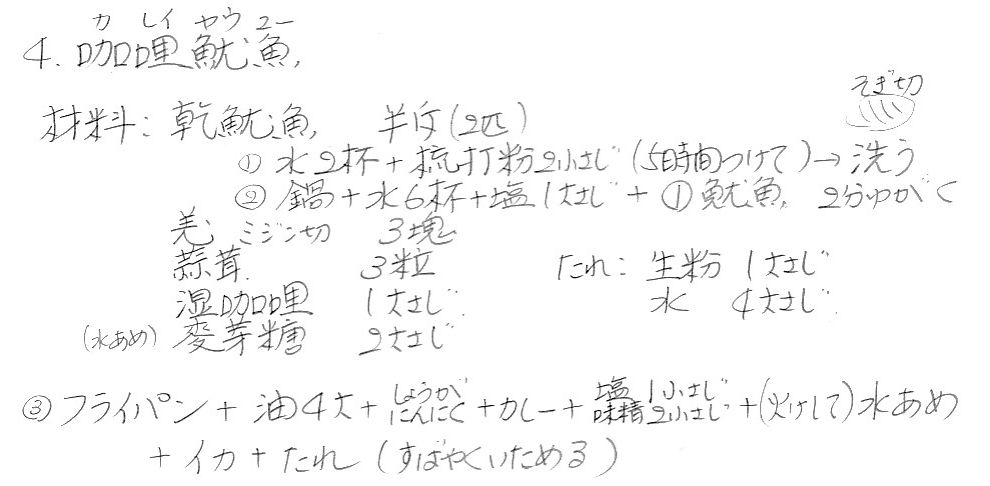 カレイヤウユー
4. 咖哩魷魚,
そぎ切
材料: 乾魷魚, 半斤(2匹)
① 水2杯+梳打粉2小さじ(5時間つけて)→洗う
② 鍋+水6杯+塩1大さじ+①魷魚, 2分ゆがく
羌 ミジン切 3塊
蒜茸. 3粒 たれ: 生粉 1大さじ
湿咖哩 1大さじ 水 4大さじ
(水あめ) 麥芽糖 2大さじ
③ フライパン + 油4大 + しょうが にんにく + カレー + 塩 1小さじ 味精2小さじ + (火けして)水あめ
+ イカ + たれ (すばやくいためる)